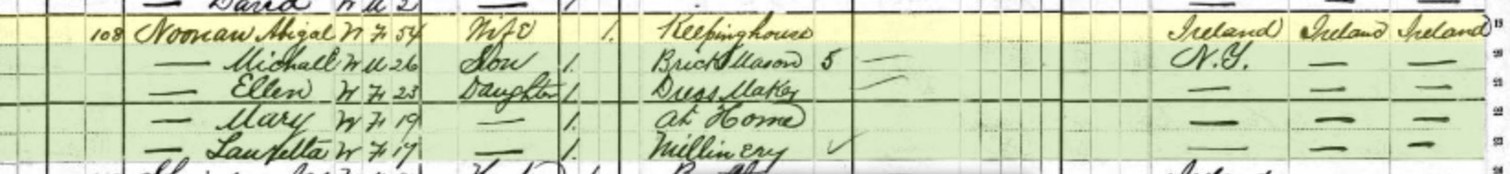 David W M 2 — 1
108 Noonan Abigal W F 54 Wife 1. Keeping house Ireland Ireland Ireland 19
— Michall W M 26 Son 1. Brick Mason 5 — N.Y. — —
— Ellen W F 23 Daughter 1. Dress Maker — — —
— Mary W F 19 — 1. at Home — — —
— Lauretta W F 17 — 1. Millinery ✓ — — —